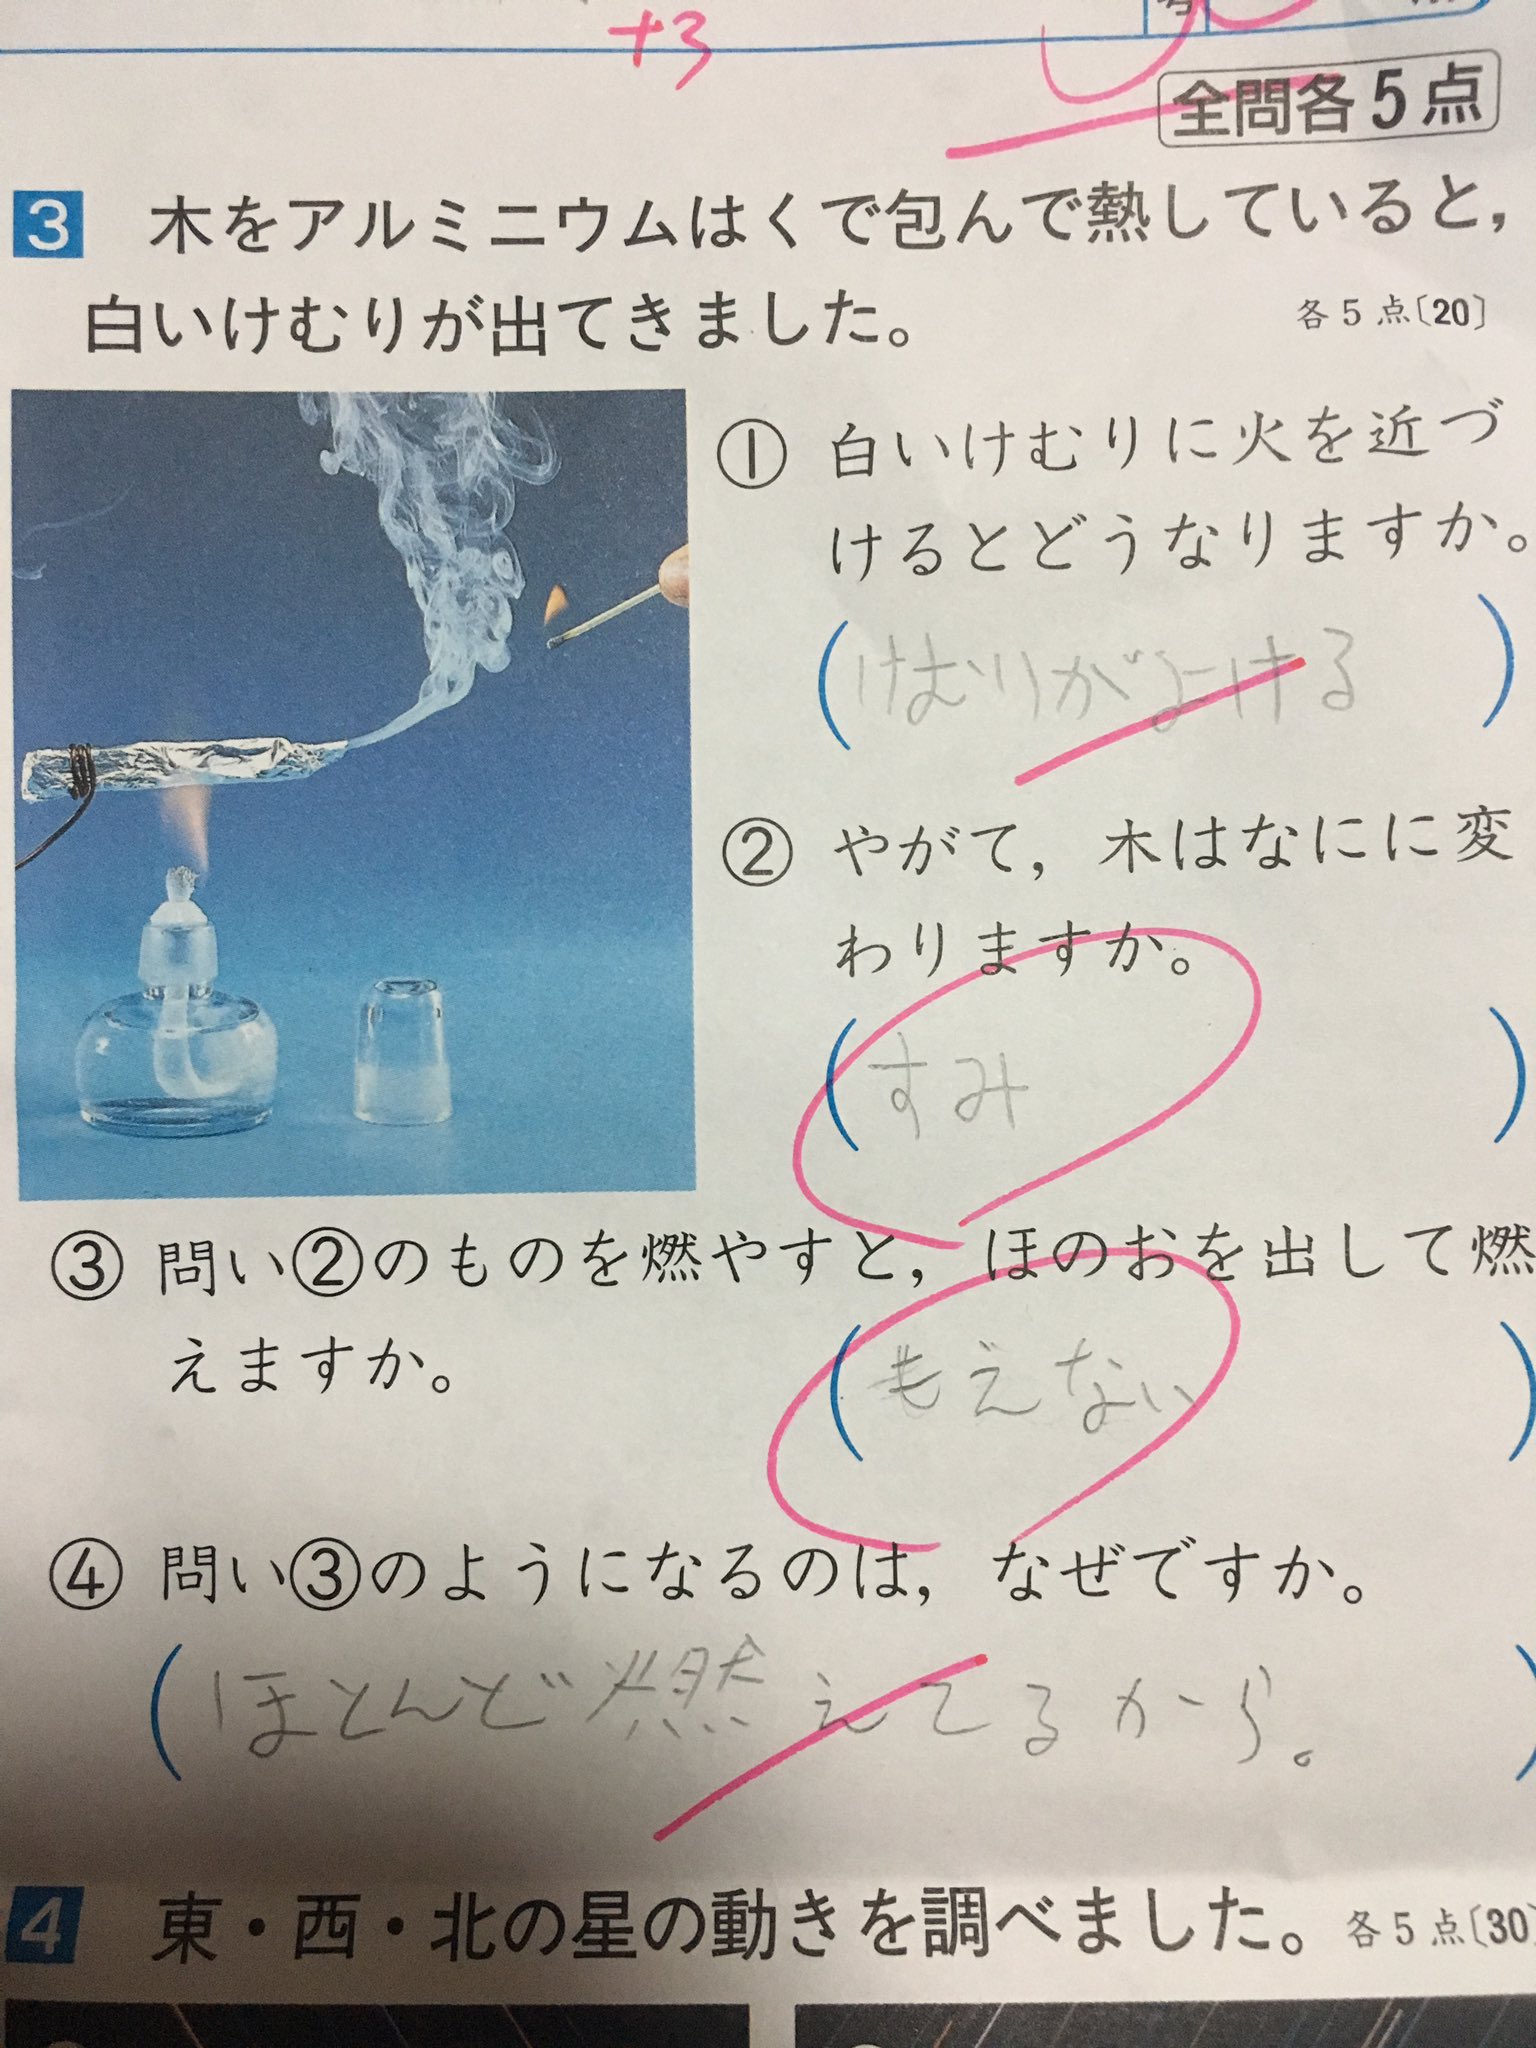 +3
全問各5点
3 木をアルミニウムはくで包んで熱していると,
白いけむりが出てきました。 各5点〔20〕
① 白いけむりに火を近づ
けるとどうなりますか。
(けむりがよける)
② やがて,木はなにに変
わりますか。
(すみ)
③ 問い②のものを燃やすと,ほのおを出して燃
えますか。 (もえない)
④ 問い③のようになるのは,なぜですか。
(ほとんど燃えてるから。)
4 東・西・北の星の動きを調べました。各5点〔30〕